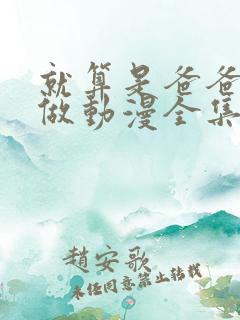 就算是爸爸
做動漫全集
趙安歌
未經同意禁止轉載